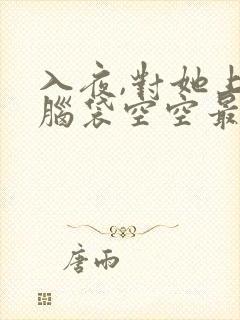 入夜,對她上
腦袋空空最
唐雨